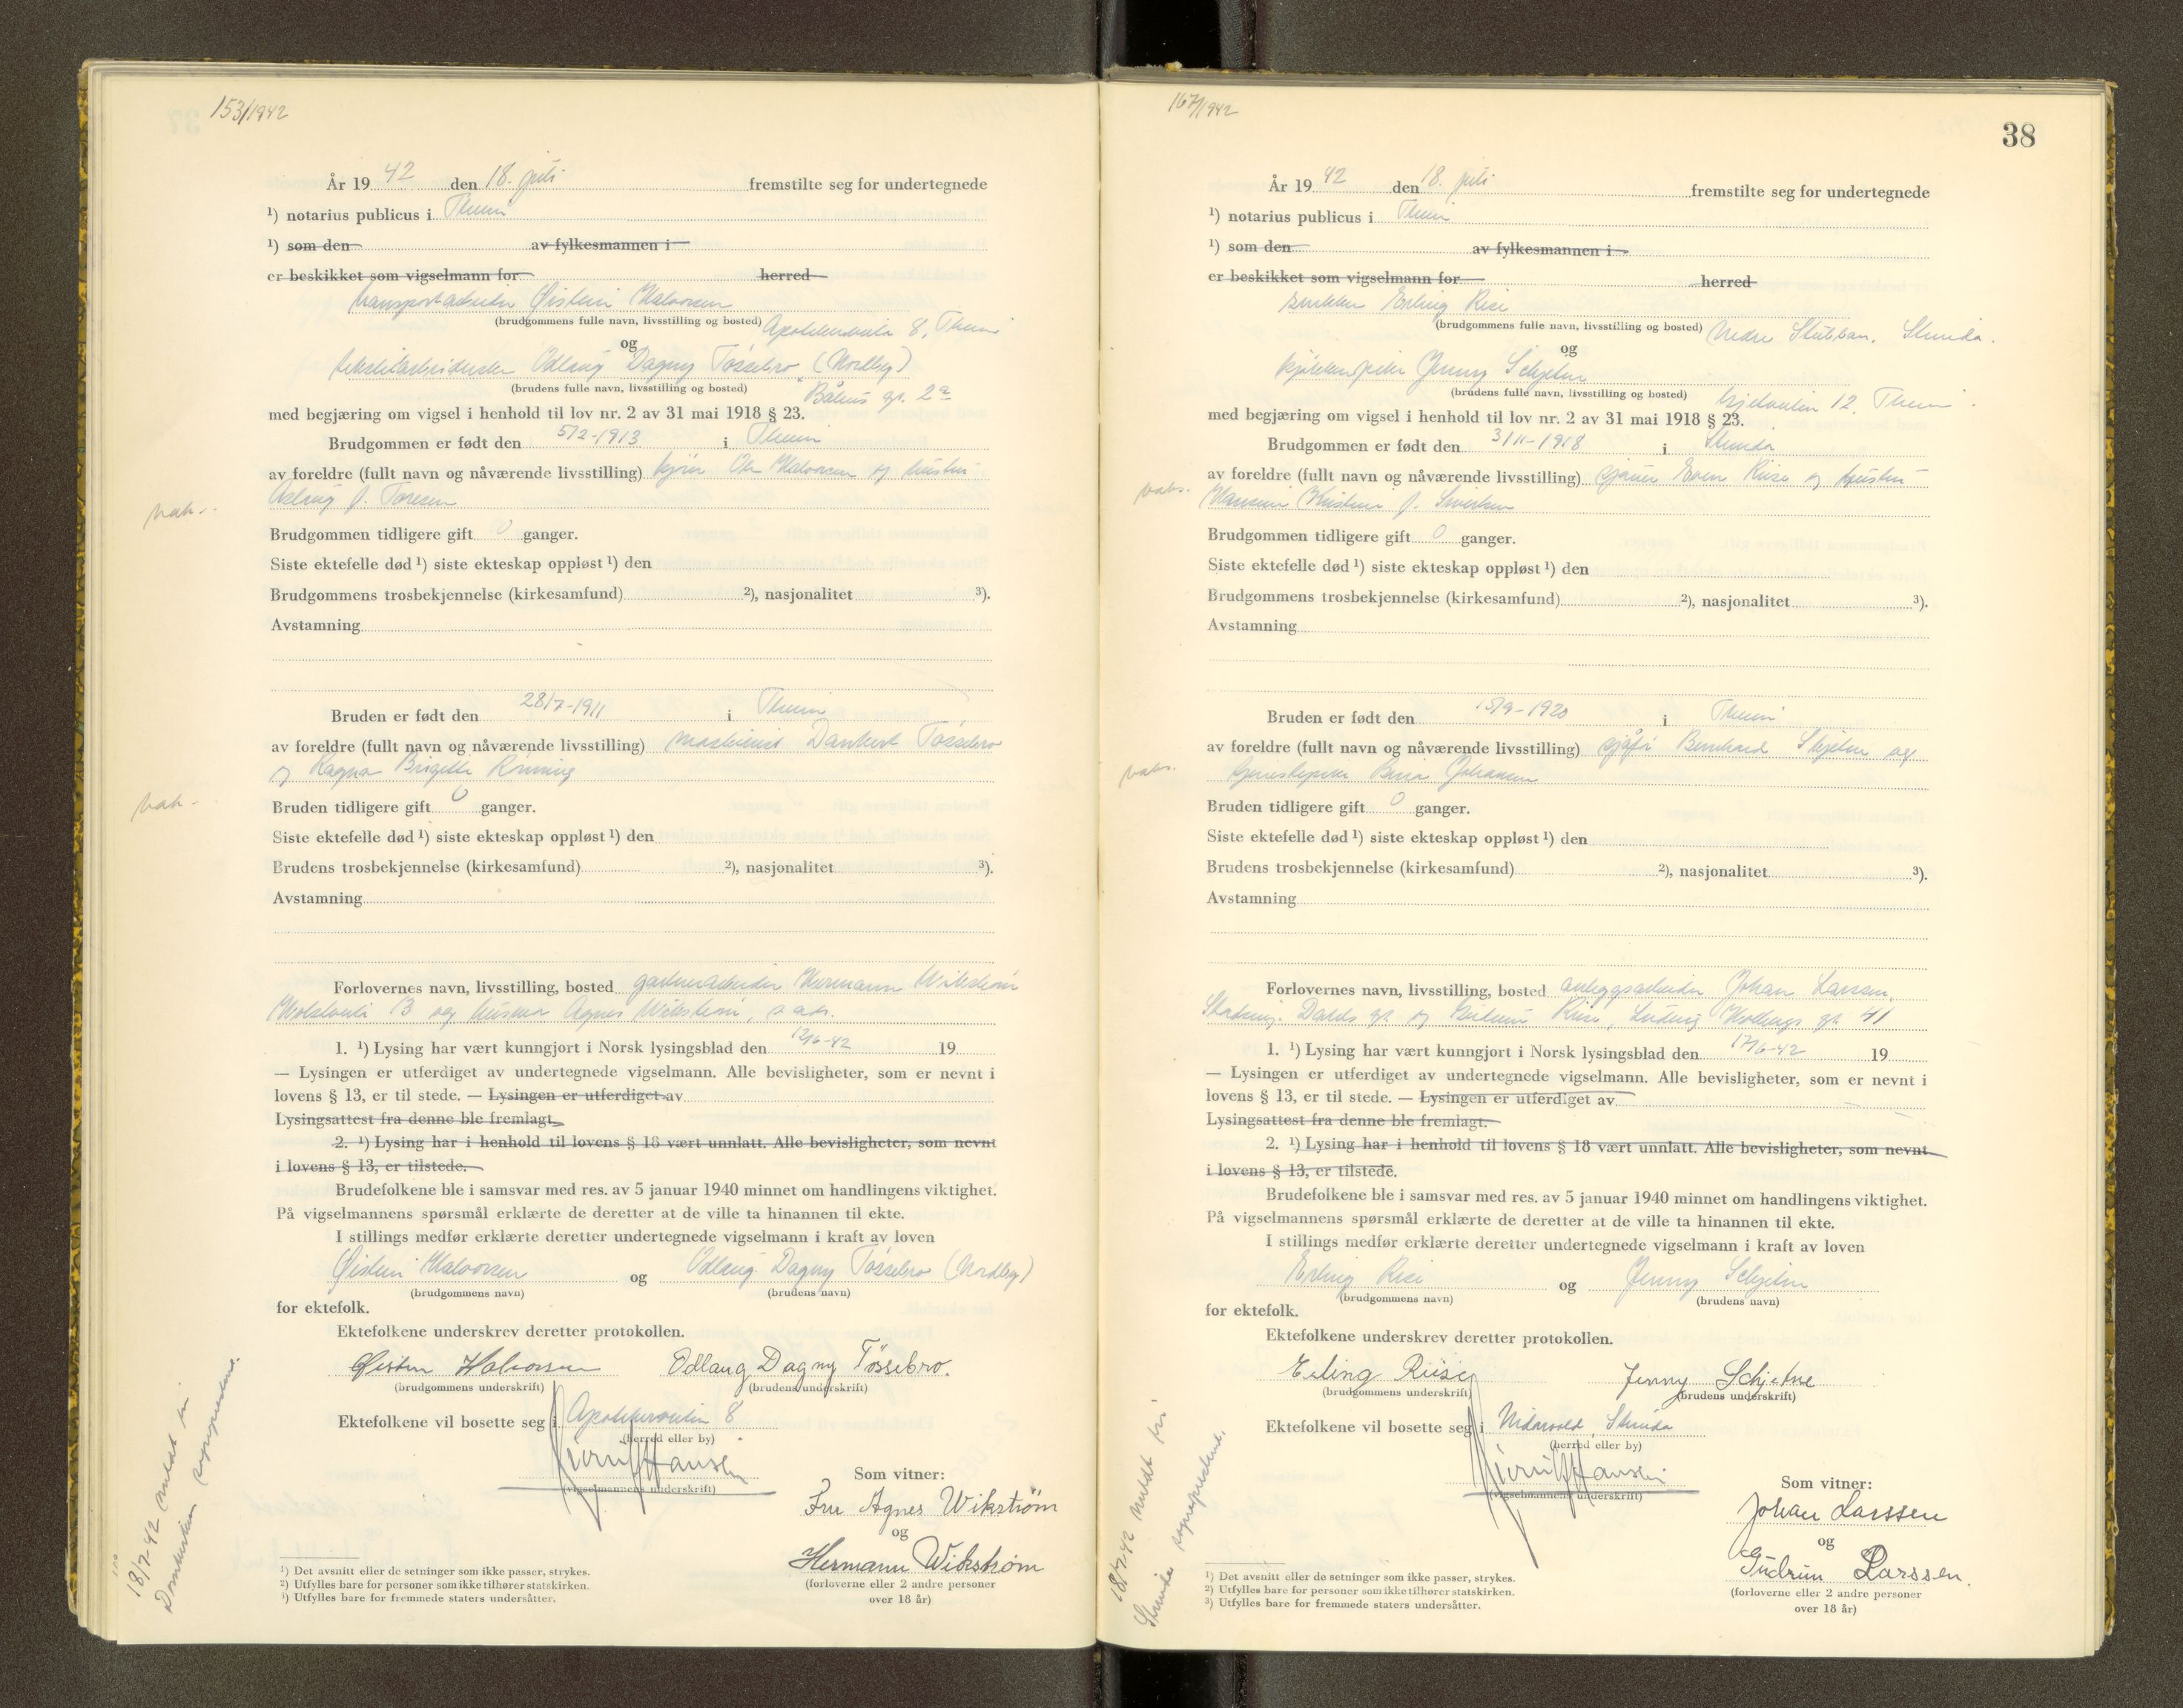 153/1942
År 19 42 den 18. juli fremstilte seg for undertegnede
¹) notarius publicus i Thein
¹) som den av fylkesmannen i
er beskikket som vigselmann for herred
transportarbeider Øistein Halvorsen
(brudgommens fulle navn, livsstilling og bosted) Apotekerveita 8,
og
Odlaug Dagny Tøssebro (Nordby)
(brudens fulle navn, livsstilling og bosted) gt. 2a
med begjæring om vigsel i henhold til lov nr. 2 av 31 mai 1918 § 23.
Brudgommen er født den 5/2-1913 i
av foreldre (fullt navn og nåværende livsstilling) Ole Halvorsen og hustru
Aslaug f. Toresen
Brudgommen tidligere gift 0 ganger.
Siste ektefelle død ¹) siste ekteskap oppløst ¹) den
Brudgommens trosbekjennelse (kirkesamfund) ²), nasjonalitet ³).
Avstamning
Bruden er født den 28/7-1911 i
av foreldre (fullt navn og nåværende livsstilling) maskinist Dankert Tøssebro
og Ragna Brigitte Rønning
Bruden tidligere gift 0 ganger.
Siste ektefelle død ¹) siste ekteskap oppløst ¹) den
Brudens trosbekjennelse (kirkesamfund) ²), nasjonalitet ³).
Avstamning
Forlovernes navn, livsstilling, bosted Hermann Wikstrøm
og husmor Agnes Wikstrøm, s. adr.
1. ¹) Lysing har vært kunngjort i Norsk lysingsblad den 12/6-42 19
— Lysingen er utferdiget av undertegnede vigselmann. Alle bevisligheter, som er nevnt i
lovens § 13, er til stede. — Lysingen er utferdiget av
Lysingsattest fra denne ble fremlagt.
2. ¹) Lysing har i henhold til lovens § 18 vært unnlatt. Alle bevisligheter, som nevnt
i lovens § 13, er tilstede.
Brudefolkene ble i samsvar med res. av 5 januar 1940 minnet om handlingens viktighet.
På vigselmannens spørsmål erklærte de deretter at de ville ta hinannen til ekte.
I stillings medfør erklærte deretter undertegnede vigselmann i kraft av loven
Øistein Halvorsen og Odlaug Dagny Tøssebro (Nordby)
(brudgommens navn) (brudens navn)
for ektefolk.
Ektefolkene underskrev deretter protokollen.
Øistein Halvorsen Odlaug Dagny Tøssebro.
(brudgommens underskrift) (brudens underskrift)
Ektefolkene vil bosette seg i Apotekerveita 8
(herred eller by)
Hansen
(vigselmannens underskrift)
Som vitner:
Fru Agnes Wikstrøm
og
Hermann Wikstrøm
(forloverne eller 2 andre personer
over 18 år)
¹) Det avsnitt eller de setninger som ikke passer, strykes.
²) Utfylles bare for personer som ikke tilhører statskirken.
³) Utfylles bare for fremmede staters undersåtter.
18/7-42 meldt til
Domkirken sogneprestemb.
167/1942
38
År 19 42 den 18. juli fremstilte seg for undertegnede
¹) notarius publicus i Thein
¹) som den av fylkesmannen i
er beskikket som vigselmann for herred
snekker Erling Riise
(brudgommens fulle navn, livsstilling og bosted) Nedre Stubban, Strinda.
og
kjøkkenpike Jenny Schjetne
(brudens fulle navn, livsstilling og bosted) 12,
med begjæring om vigsel i henhold til lov nr. 2 av 31 mai 1918 § 23.
Brudgommen er født den 3/11-1918 i Strinda
av foreldre (fullt navn og nåværende livsstilling) Riise og hustru
Brudgommen tidligere gift 0 ganger.
Siste ektefelle død ¹) siste ekteskap oppløst ¹) den
Brudgommens trosbekjennelse (kirkesamfund) ²), nasjonalitet ³).
Avstamning
Bruden er født den 15/9-1920 i
av foreldre (fullt navn og nåværende livsstilling) sjåfør Bernhard Schjetne og
Johansen
Bruden tidligere gift 0 ganger.
Siste ektefelle død ¹) siste ekteskap oppløst ¹) den
Brudens trosbekjennelse (kirkesamfund) ²), nasjonalitet ³).
Avstamning
Forlovernes navn, livsstilling, bosted anleggsarbeider Johan Larssen,
Dahls gt. og Riise, Ludvig gt. 41
1. ¹) Lysing har vært kunngjort i Norsk lysingsblad den 17/6-42 19
— Lysingen er utferdiget av undertegnede vigselmann. Alle bevisligheter, som er nevnt i
lovens § 13, er til stede. — Lysingen er utferdiget av
Lysingsattest fra denne ble fremlagt.
2. ¹) Lysing har i henhold til lovens § 18 vært unnlatt. Alle bevisligheter, som nevnt
i lovens § 13, er tilstede.
Brudefolkene ble i samsvar med res. av 5 januar 1940 minnet om handlingens viktighet.
På vigselmannens spørsmål erklærte de deretter at de ville ta hinannen til ekte.
I stillings medfør erklærte deretter undertegnede vigselmann i kraft av loven
Erling Riise og Jenny Schjetne
(brudgommens navn) (brudens navn)
for ektefolk.
Ektefolkene underskrev deretter protokollen.
Erling Riise Jenny Schjetne
(brudgommens underskrift) (brudens underskrift)
Ektefolkene vil bosette seg i Nidarvold, Strinda
(herred eller by)
Hansen
(vigselmannens underskrift)
Som vitner:
Johan Larssen
og
Gudrun Larssen.
(forloverne eller 2 andre personer
over 18 år)
¹) Det avsnitt eller de setninger som ikke passer, strykes.
²) Utfylles bare for personer som ikke tilhører statskirken.
³) Utfylles bare for fremmede staters undersåtter.
18/7-42 meldt til
Strinda sogneprestemb.